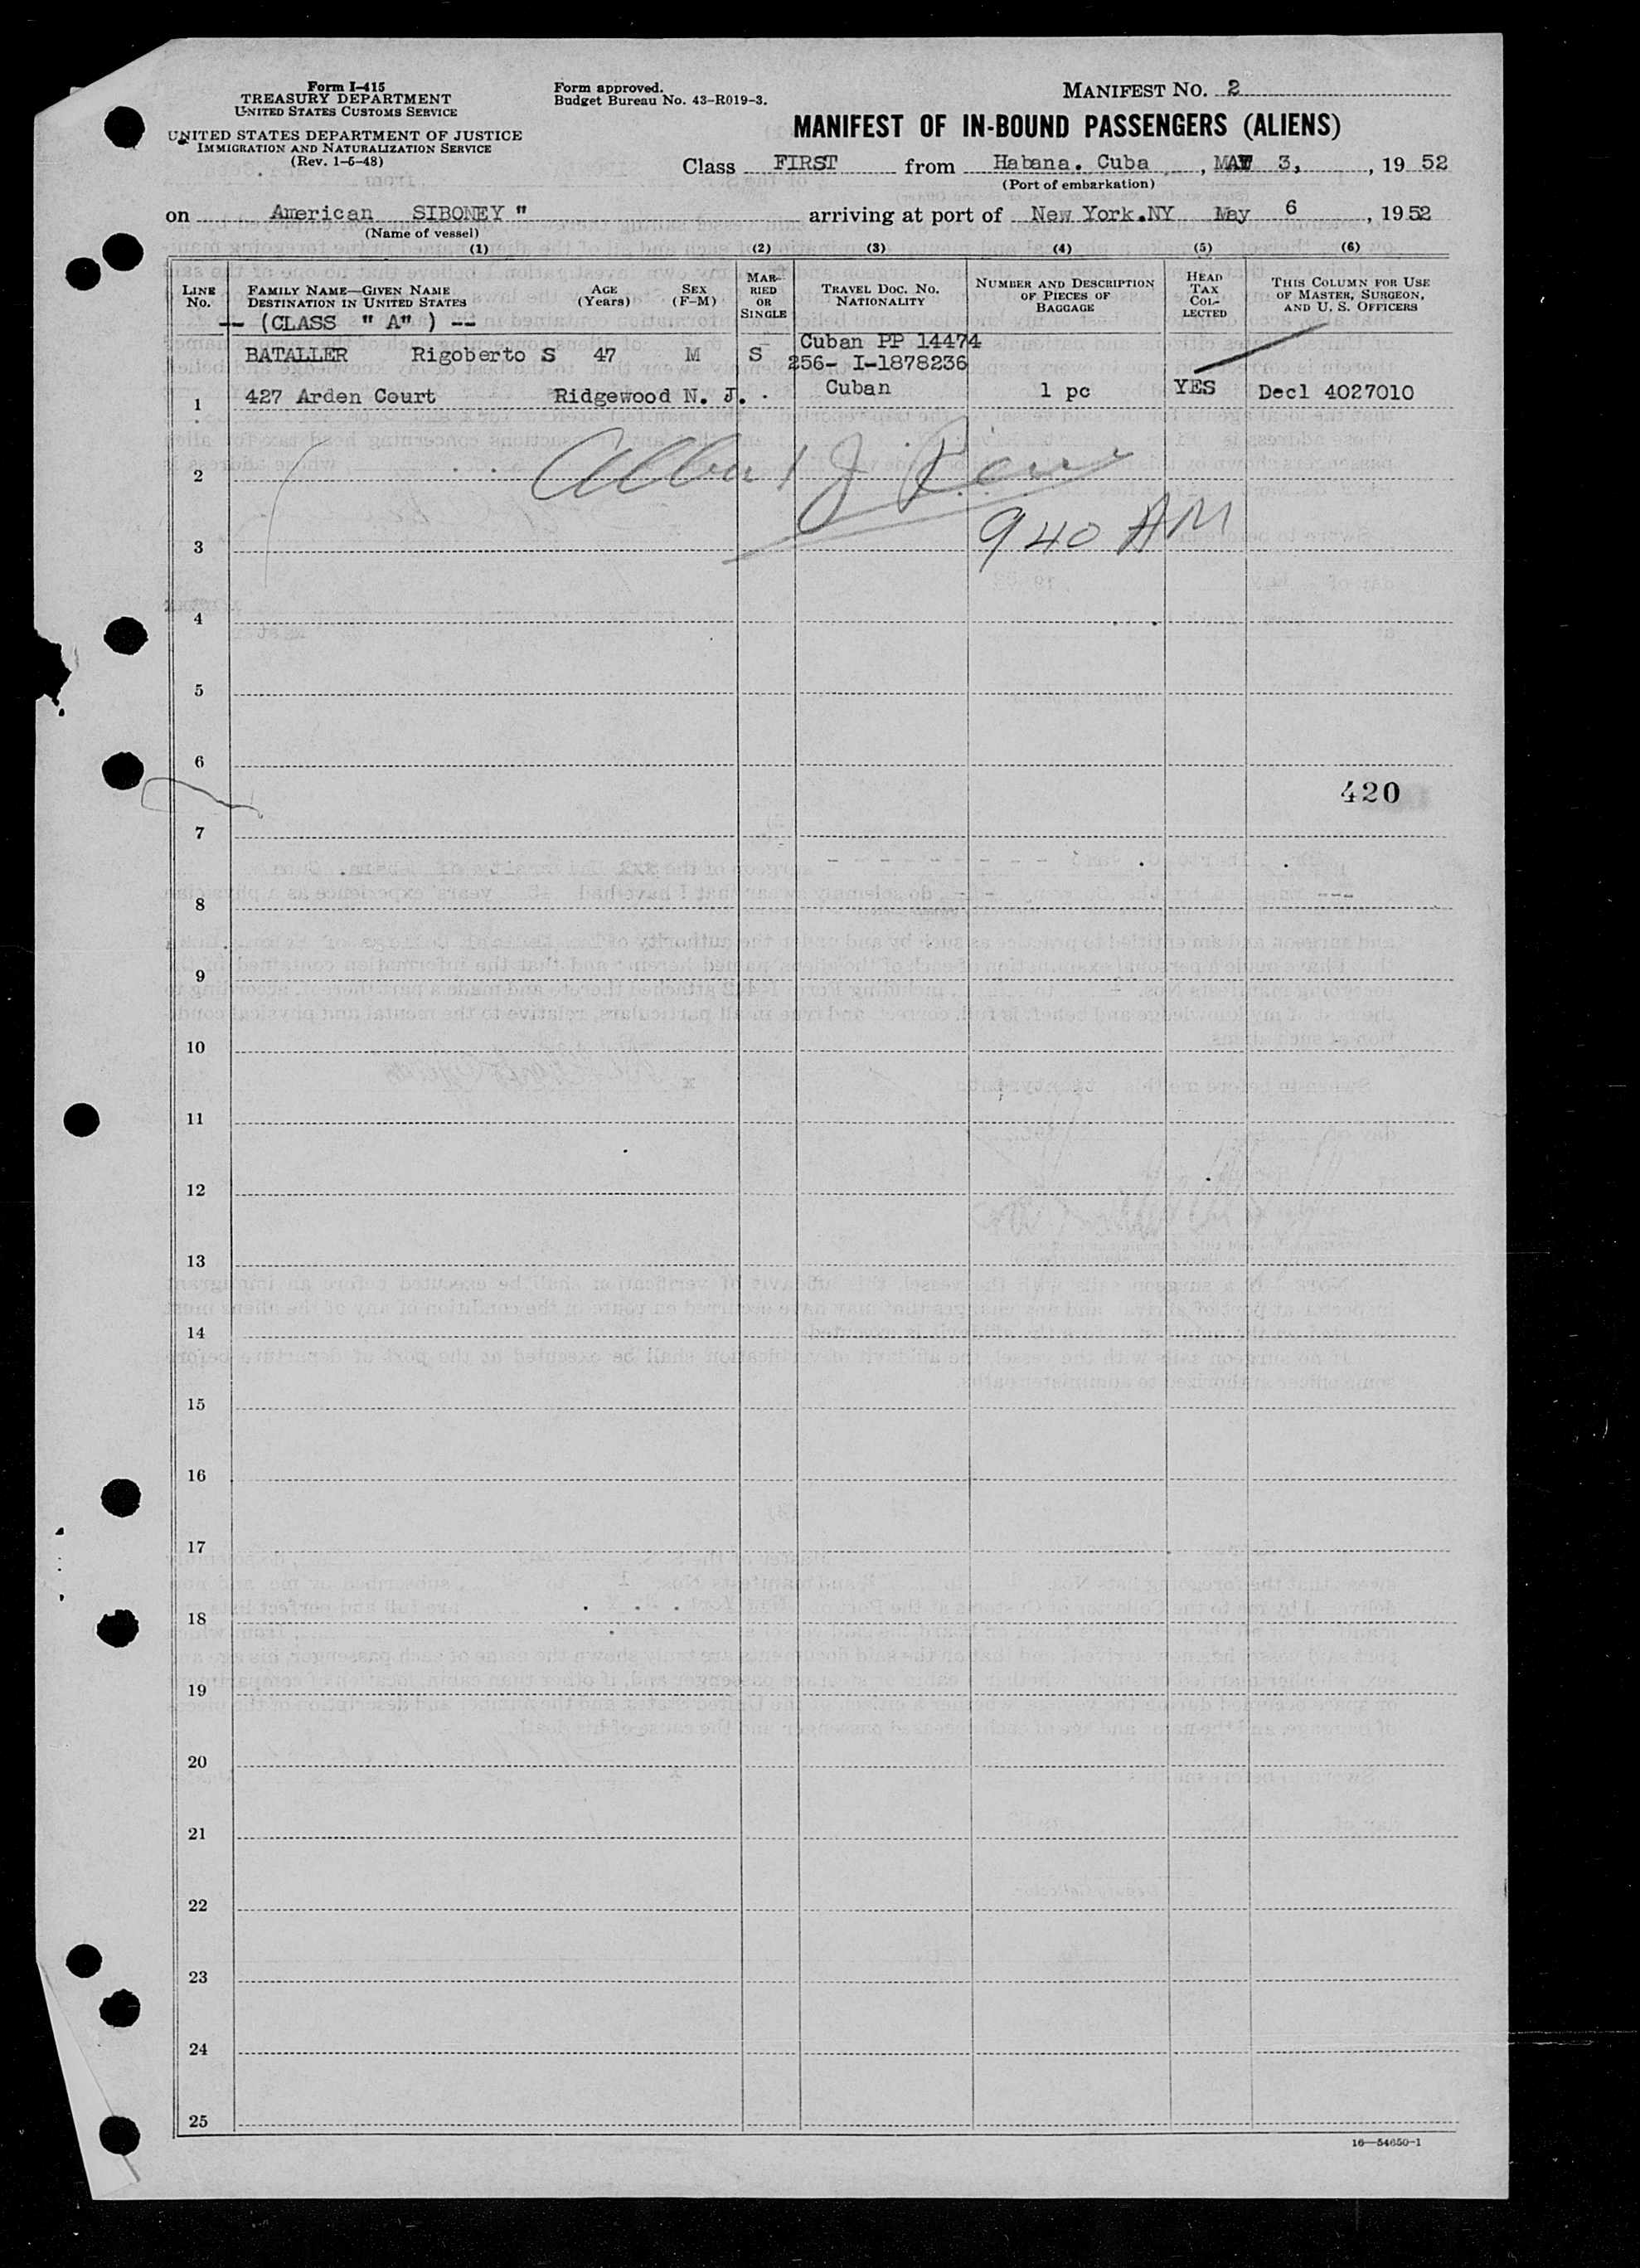 Form I-415
TREASURY DEPARTMENT
UNITED STATES CUSTOMS SERVICE
UNITED STATES DEPARTMENT OF JUSTICE
IMMIGRATION AND NATURALIZATION SERVICE
(Rev. 1-5-48)
Form approved.
Budget Bureau No. 43-R019-3.
MANIFEST NO. 2
MANIFEST OF IN-BOUND PASSENGERS (ALIENS)
Class FIRST from Habana. Cuba, MAY 3, , 19 52
(Port of embarkation)
on American SIBONEY " arriving at port of New York.NY May 6, 1952
(Name of vessel)
(1) (2) (3) (4) (5) (6)
LINE No.
FAMILY NAME—GIVEN NAME
DESTINATION IN UNITED STATES
AGE (Years)
SEX (F-M)
MARRIED OR SINGLE
TRAVEL DOC. NO. NATIONALITY
NUMBER AND DESCRIPTION OF PIECES OF BAGGAGE
HEAD TAX COLLECTED
THIS COLUMN FOR USE OF MASTER, SURGEON, AND U. S. OFFICERS
-- (CLASS " A" ) --
Cuban PP 14474
BATALLER Rigoberto S 47 M S 256- I-1878236
1 427 Arden Court Ridgewood N. J. Cuban 1 pc YES Decl 4027010
2 Albert J
3 940 AM
4
5
6
420
7
8
9
10
11
12
13
14
15
16
17
18
19
20
21
22
23
24
25
16—54650-1